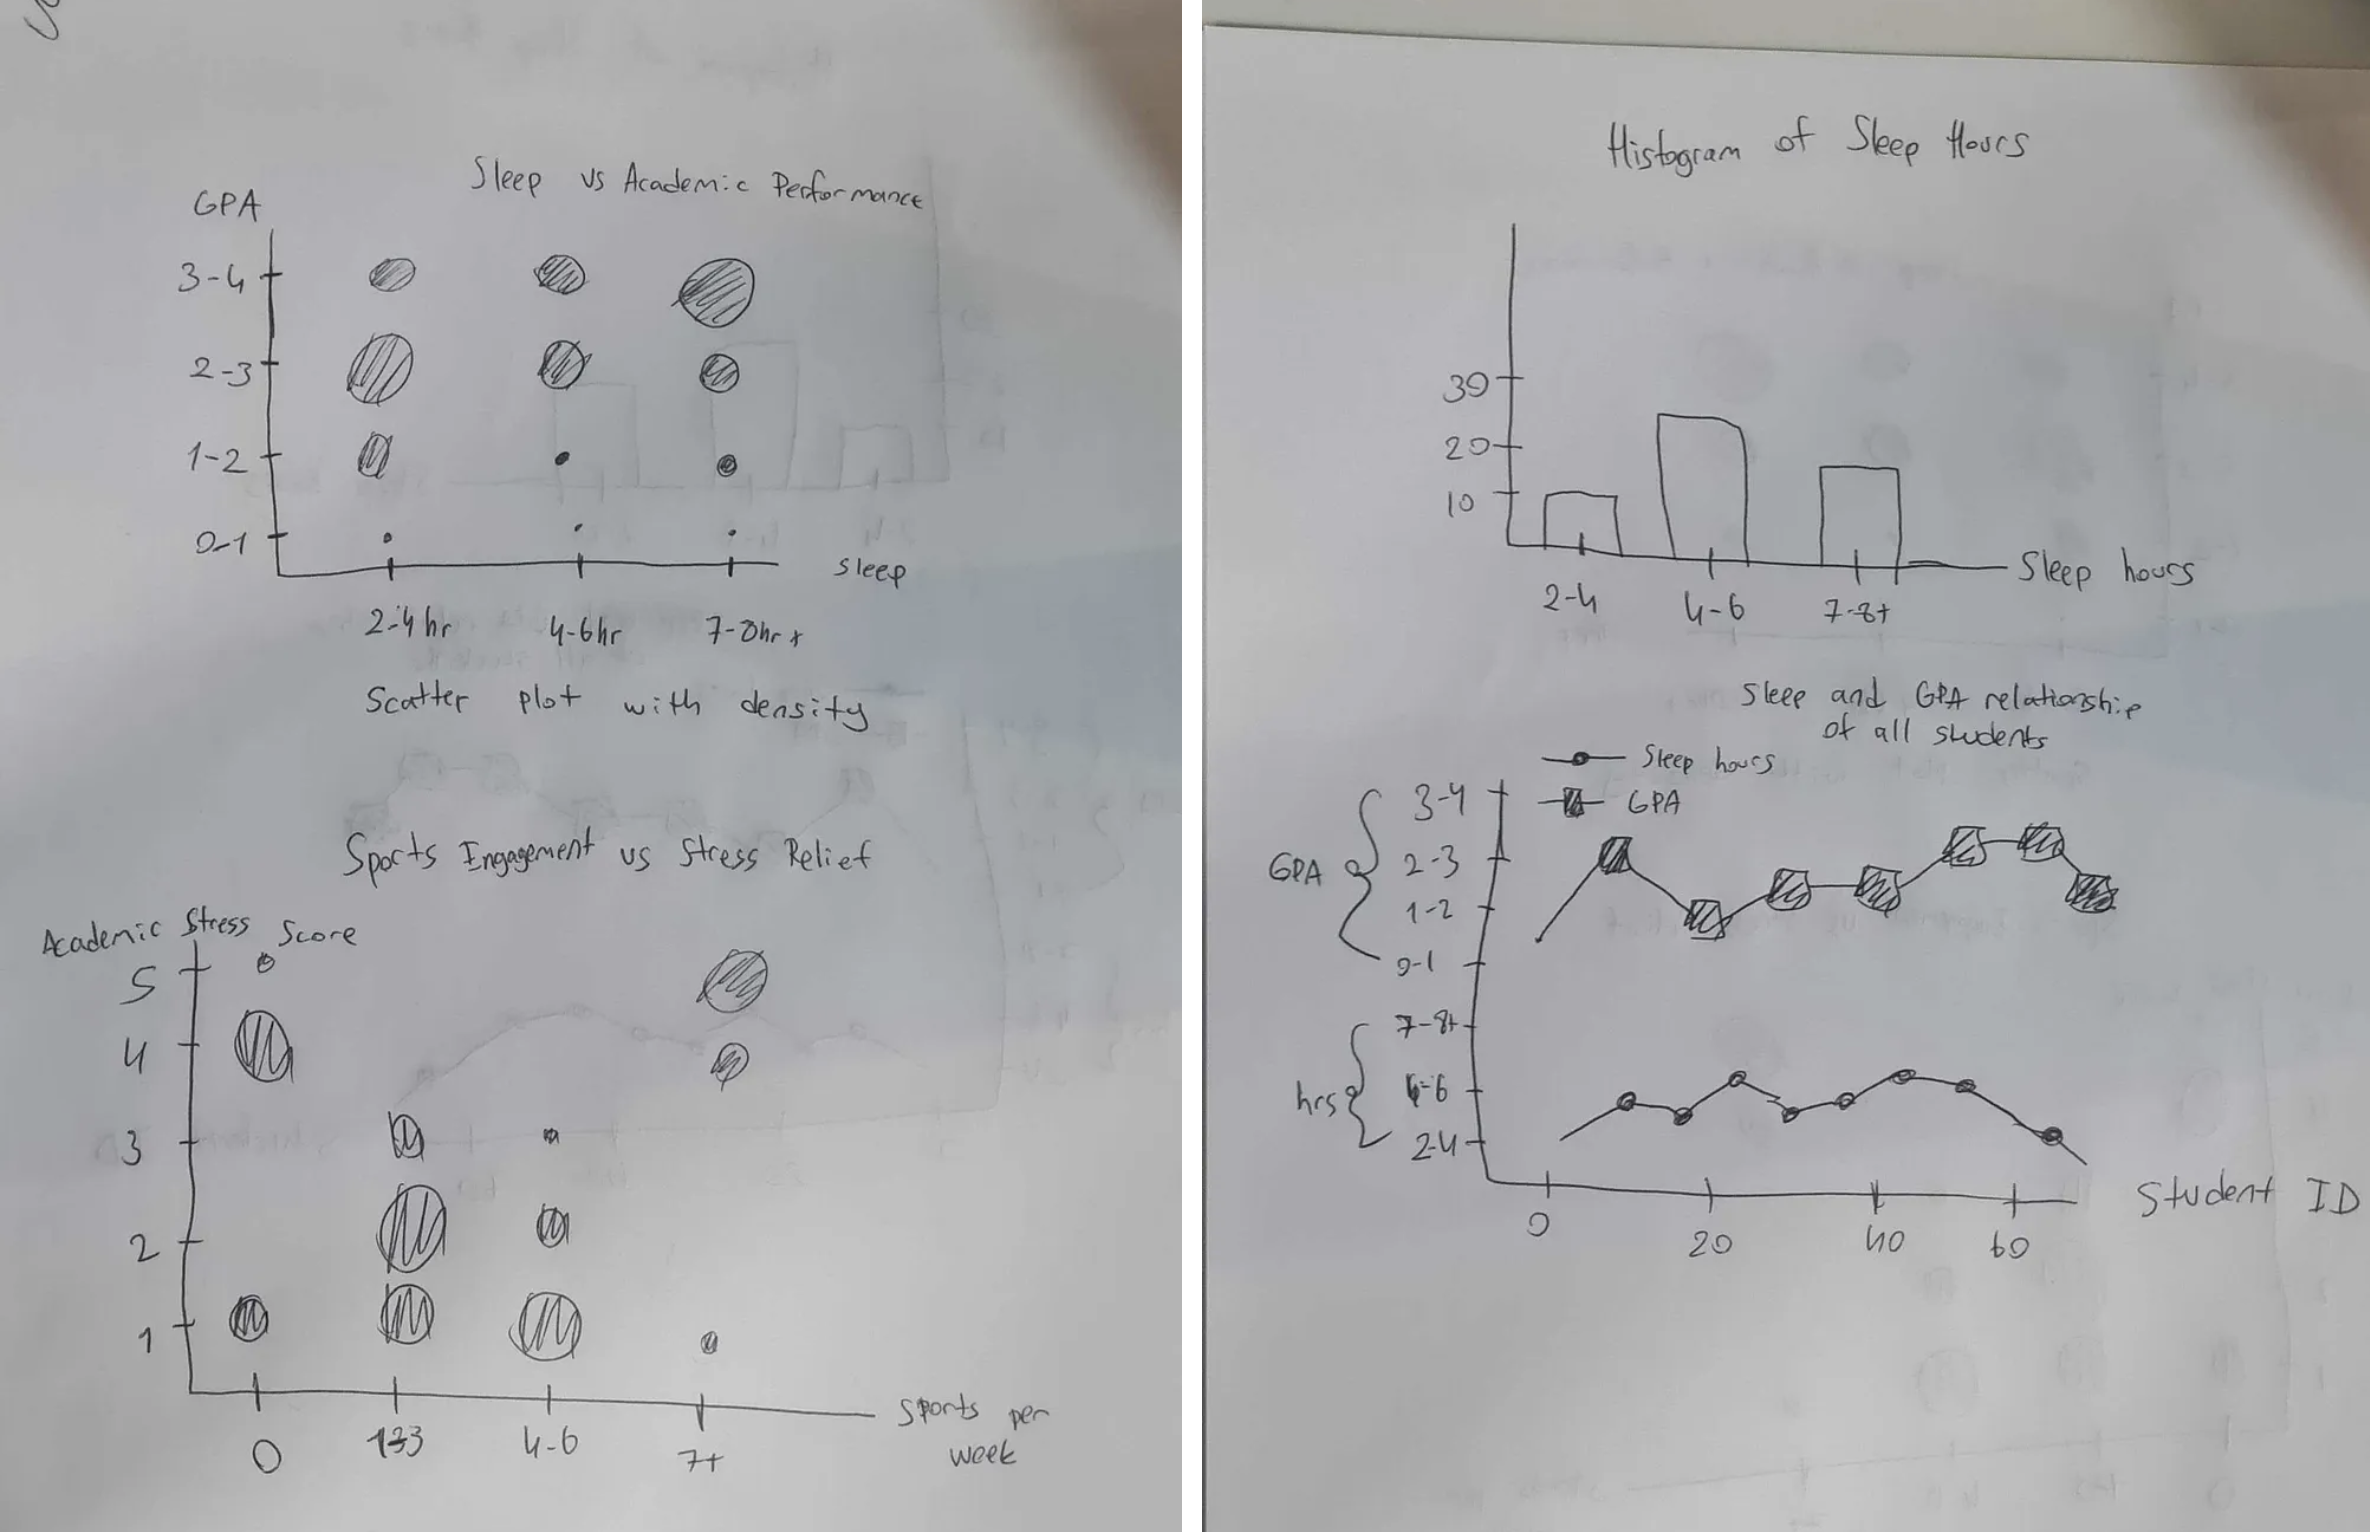 Sleep vs Academic Performance
GPA
3-4
2-3
1-2
0-1
sleep
2-4 hr
4-6hr
7-8hr +
Scatter plot with density
Sports Engagement vs Stress Relief
Academic Stress Score
5
4
3
2
1
0
4-6
7+
Sports per
week
Histogram of Sleep Hours
30
20
10
Sleep hours
2-4
4-6
7-8+
Sleep and GPA relationship
of all students
Sleep hours
GPA
GPA
3-4
2-3
1-2
0-1
hrs
7-8+
4-6
2-4
Student ID
0
20
40
60